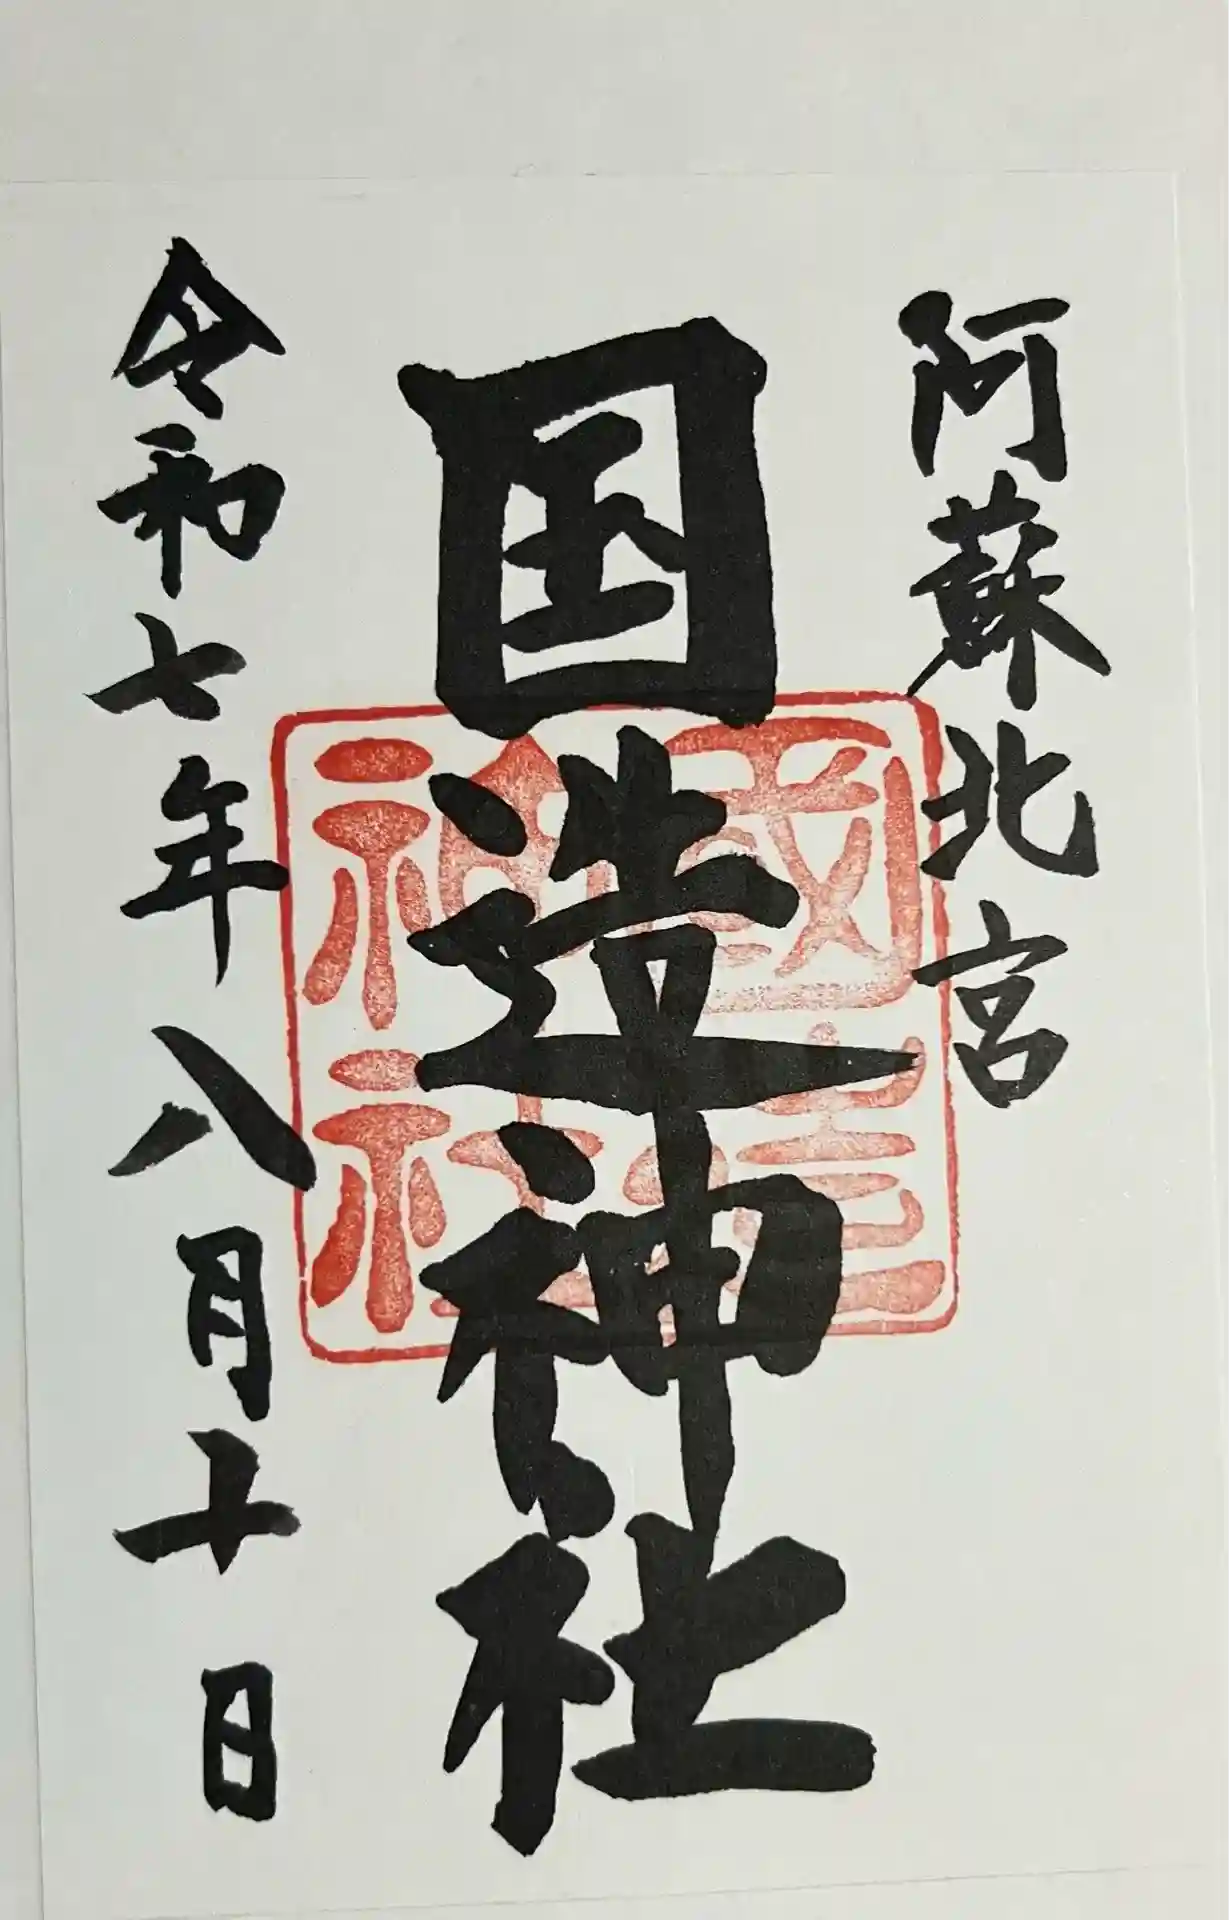 阿蘇北宮
国造神社
國造
神社
令和七年八月十日